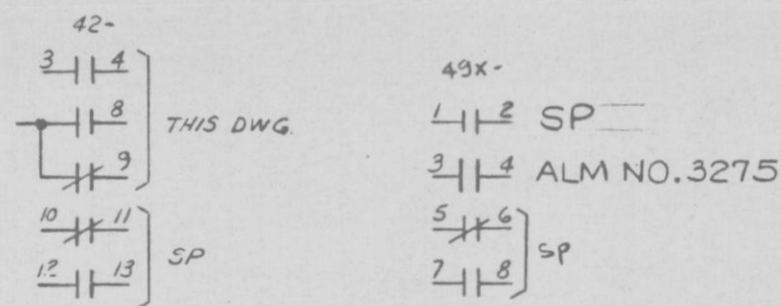 42-
3 4
8
THIS DWG.
9
10 11
12 13
SP
49X-
1 2 SP
3 4 ALM NO. 3275
5 6
7 8
SP